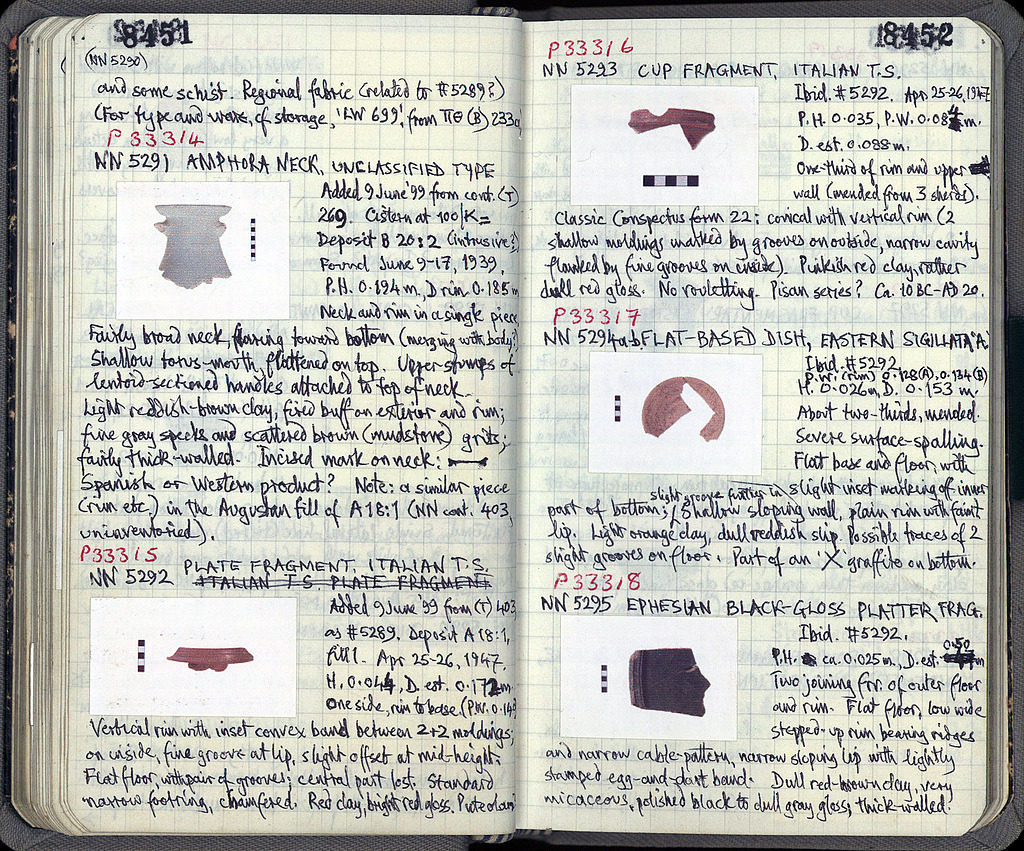 8451
(NN 5290)
and some schist. Regional fabric (related to #5289?)
(For type and ware, cf. storage, 'LW 699', from ΠΘ (B) 233
P 33314
NN 5291 AMPHORA NECK, UNCLASSIFIED TYPE
Added 9 June '99 from cont. (T)
269. Cistern at 100/K=
Deposit B 20:2 (intrusive?)
Found June 9-17, 1939.
P.H. 0.194 m, D rim. 0.185 m
Neck and rim in a single piece
Fairly broad neck, flaring toward bottom (merging with body?)
Shallow torus-mouth, flattened on top. Upper stumps of
lentoid-sectioned handles attached to top of neck.
Light reddish-brown clay, fired buff on exterior and rim;
fine gray specks and scattered brown (mudstone) grits;
fairly thick-walled. Incised mark on neck:
Spanish or Western product? Note: a similar piece
(rim etc.) in the Augustan fill of A 18:1 (NN cont. 403,
uninventoried).
P33315
NN 5292 PLATE FRAGMENT, ITALIAN T.S.
ITALIAN T.S. PLATE FRAGMENT
Added 9 June '99 from (T) 403
as #5289. Deposit A 18:1,
fill 1. Apr 25-26, 1947.
H. 0.044, D. est. 0.172 m.
One side, rim to base. (P.W. 0.149
Vertical rim with inset convex band between 2+2 moldings;
on inside, fine groove at lip, slight offset at mid-height.
Flat floor, with pair of grooves; central part lost. Standard
narrow footring, chamfered. Red clay, bright red gloss.
8452
P33316
NN 5293 CUP FRAGMENT, ITALIAN T.S.
Ibid. #5292. Apr. 25-26, 1947
P.H. 0.035, P.W. 0.084 m.
D. est. 0.088 m.
One-third of rim and upper
wall (mended from 3 sherds).
Classic Conspectus form 22: conical with vertical rim (2
shallow moldings marked by grooves on outside, narrow cavity
flanked by fine grooves on inside). Pinkish red clay, rather
dull red gloss. No rouletting. Pisan series? Ca. 10 BC-AD 20.
P33317
NN 5294 a-b. FLAT-BASED DISH, EASTERN SIGILLATA 'A'
Ibid. #5292
P.W. (rim) 0.128 (A), 0.134 (B)
H. 0.026 m, D. 0.153 m.
About two-thirds, mended.
Severe surface-spalling.
Flat base and floor, with
slight groove further in slight inset marking of inner
part of bottom; / Shallow sloping wall, plain rim with faint
lip. Light orange clay, dull reddish slip. Possible traces of 2
slight grooves on floor. Part of an 'X' graffito on bottom.
P33318
NN 5295 EPHESIAN BLACK-GLOSS PLATTER FRAG.
Ibid. #5292.
P.H. ca. 0.025 m, D. est. 0.50 m
Two joining frr. of outer floor
and rim. Flat floor, low wide
stepped-up rim bearing ridges
and narrow cable-pattern, narrow sloping lip with lightly
stamped egg-and-dart band. Dull red-brown clay, very
micaceous, polished black to dull gray gloss; thick-walled.